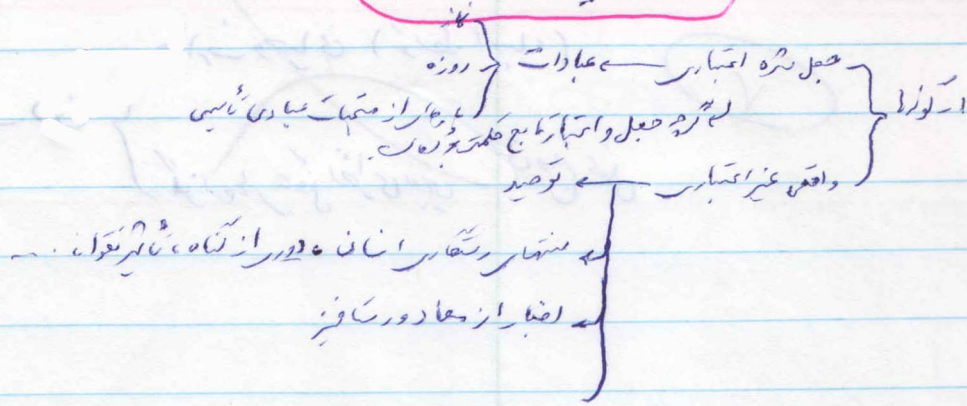 نماز
جعل شده اعتباری ← عبادات روزه
پاره‌ای از مستحبات عبادی تأسیسی
گرچه جعل و اعتبار تابع حکمت بوده‌اند
واقعی غیر اعتباری ← توحید
منتهای رستگاری انسان، دوری از گناه، تأثیر تقوا، ...
اخبار از معاد و رستاخیز